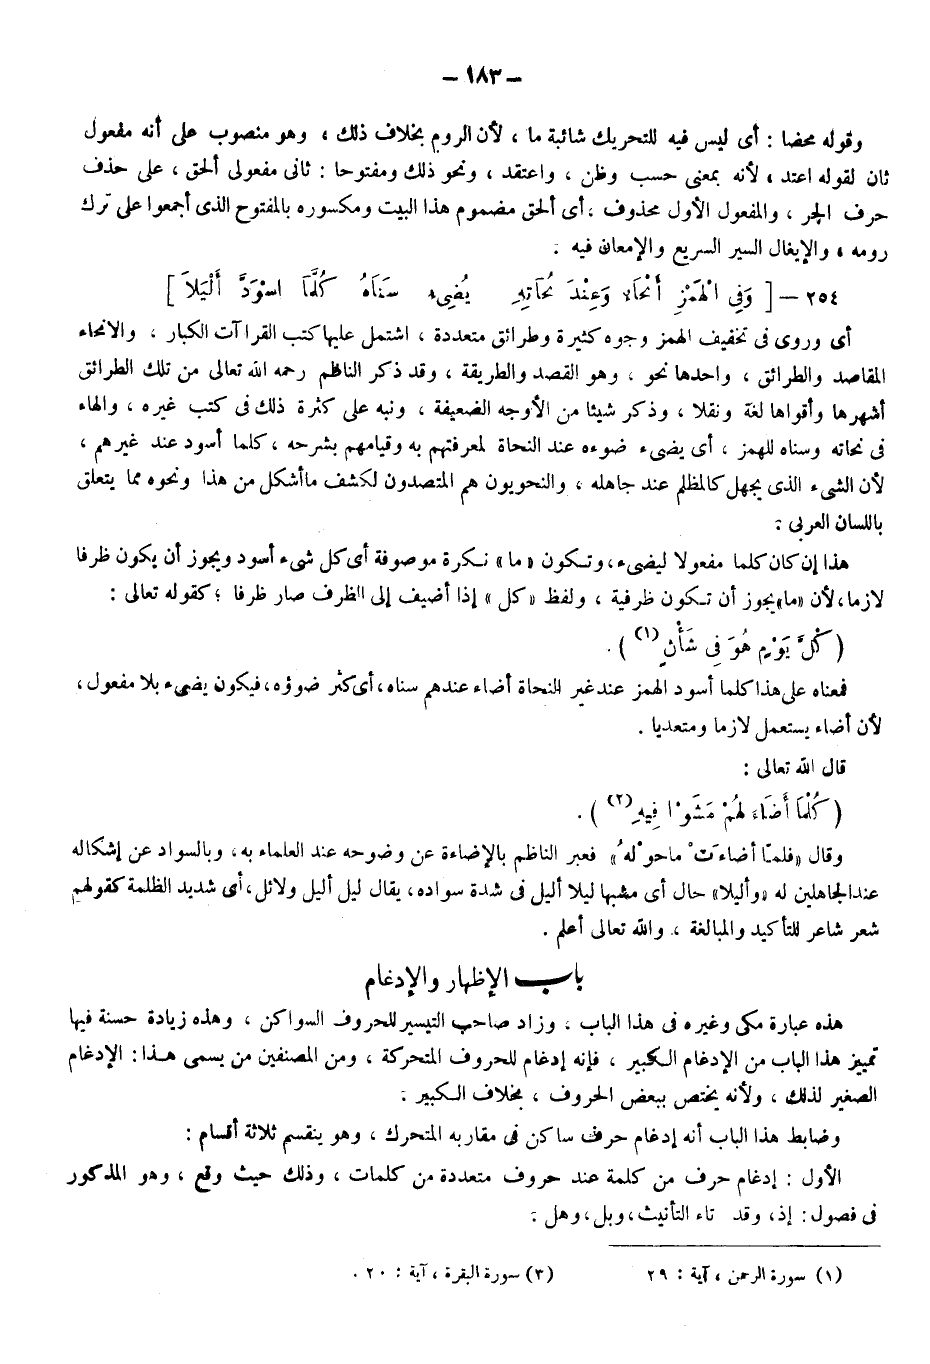 – ١٨٣ –
وقوله محضا : أى ليس فيه للتحريك شائبة ما ، لأن الروم بخلاف ذلك ، وهو منصوب على أنه مفعول
ثان لقوله اعتد ، لأنه بمعنى حسب وظن ، واعتقد ، ونحو ذلك ومفتوحا : ثانى مفعولى ألحق ، على حذف
حرف الجر ، والمفعول الأول محذوف ، أى ألحق مضموم هذا البيت ومكسوره بالمفتوح الذى أجمعوا على ترك
رومه ، والإيغال السير السريع والإمعان فيه .
٢٥٤ – [ وَفِي الْهَمْزِ أَنْحَاء وَعِنْدَ نُحَاتِهِ يُضِيء سَنَاهُ كُلَّمَا اسْوَدَّ أَلْيَلَا ]
أى وروى فى تخفيف الهمز وجوه كثيرة وطرائق متعددة ، اشتمل عليها كتب القراآت الكبار ، والانحاء
المقاصد والطرائق ، واحدها نحو ، وهو القصد والطريقة ، وقد ذكر الناظم رحمه الله تعالى من تلك الطرائق
أشهرها وأقواها لغة ونقلا ، وذكر شيئا من الأوجه الضعيفة ، ونبه على كثرة ذلك فى كتب غيره ، والهاء
فى نحاته وسناه للهمز ، أى يضىء ضوءه عند النحاة لمعرفتهم به وقيامهم بشرحه ، كلما أسود عند غيرهم ،
لأن الشىء الذى يجهل كالمظلم عند جاهله ، والنحويون هم المتصدون لكشف ما أشكل من هذا ونحوه مما يتعلق
باللسان العربى .
هذا إن كان كلما مفعولا ليضىء ، وتكون «ما» نكرة موصوفة أى كل شىء أسود ويجوز أن يكون ظرفا
لازما ، لأن «ما» يجوز أن تكون ظرفية ، ولفظ «كل» إذا أضيف إلى الظرف صار ظرفا ؛ كقوله تعالى :
( كُلَّ يَوْمٍ هُوَ فِى شَأْنٍ (١) ) .
فمعناه على هذا كلما أسود الهمز عند غير النحاة أضاء عندهم سناه ، أى كثر ضوؤه ، فيكون يضىء بلا مفعول ،
لأن أضاء يستعمل لازما ومتعديا .
قال الله تعالى :
( كُلَّمَا أَضَاءَ لَهُمْ مَشَوْا فِيهِ (٢) ) .
وقال «فلمّا أضاءَتْ ماحوْلهُ» فعبر الناظم بالإضاءة عن وضوحه عند العلماء به ، وبالسواد عن إشكاله
عند الجاهلين له «وأليلا» حال أى مشبها ليلا أليل فى شدة سواده ، يقال ليل أليل ولائل ، أى شديد الظلمة كقولهم
شعر شاعر للتأكيد والمبالغة ، والله تعالى أعلم .
باب الإظهار والإدغام
هذه عبارة مكى وغيره فى هذا الباب ، وزاد صاحب التيسير للحروف السواكن ، وهذه زيادة حسنة فيها
تمييز هذا الباب من الإدغام الكبير ، فإنه إدغام للحروف المتحركة ، ومن المصنفين من يسمى هذا : الإدغام
الصغير لذلك ، ولأنه يختص ببعض الحروف ، بخلاف الكبير .
وضابط هذا الباب أنه إدغام حرف ساكن فى مقاربه المتحرك ، وهو ينقسم ثلاثة أقسام :
الأول : إدغام حرف من كلمة عند حروف متعددة من كلمات ، وذلك حيث وقع ، وهو المذكور
فى فصول : إذ ، وقد تاء التأنيث ، وبل ، وهل .
(١) سورة الرحمن ، آية : ٢٩ (٢) سورة البقرة ، آية : ٢٠ .